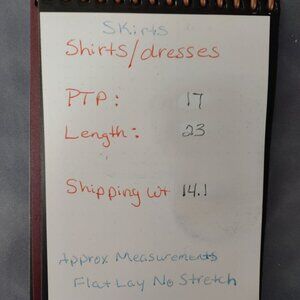 Skirts
Shirts/dresses
PTP: 17
Length: 23
Shipping wt 14.1
Approx Measurements
Flat Lay No Stretch